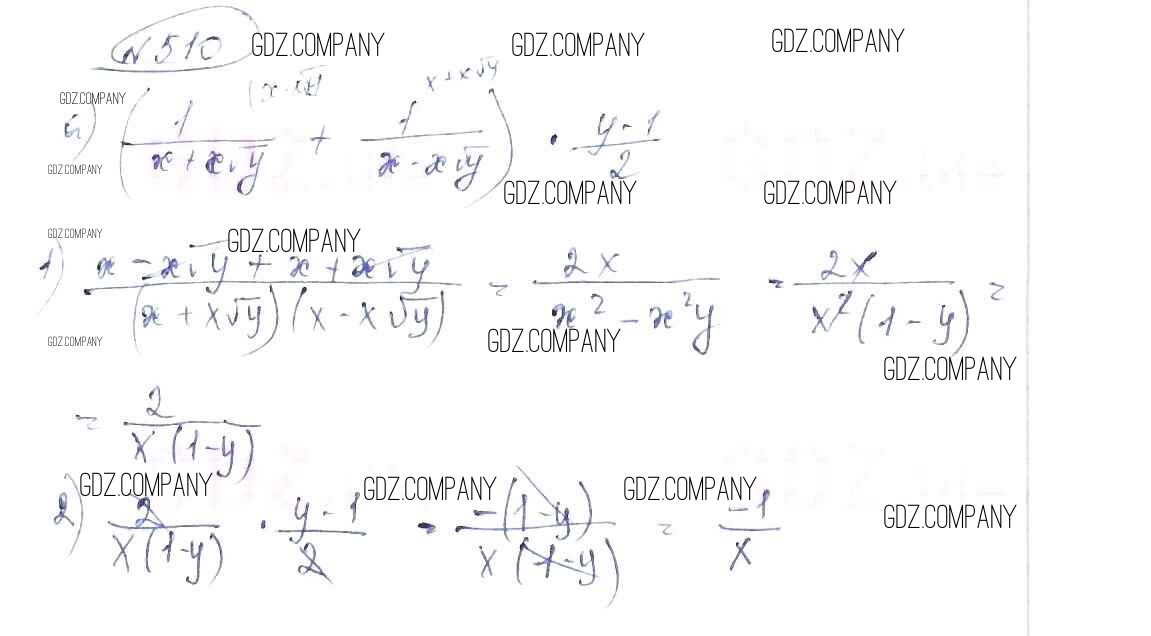 N 510 GDZ.COMPANY GDZ.COMPANY GDZ.COMPANY
(x-x√y) x+x√y
GDZ.COMPANY
а) (1/(x+x√y) + 1/(x-x√y)) · (y-1)/2
GDZ.COMPANY GDZ.COMPANY GDZ.COMPANY
GDZ.COMPANY GDZ.COMPANY
1) (x-x√y+x+x√y)/((x+x√y)(x-x√y)) = 2x/(x²-x²y) = 2x/(x²(1-y)) =
GDZ.COMPANY GDZ.COMPANY GDZ.COMPANY
= 2/(x(1-y))
GDZ.COMPANY GDZ.COMPANY GDZ.COMPANY GDZ.COMPANY
2) 2/(x(1-y)) · (y-1)/2 = -(1-y)/(x(1-y)) = -1/x